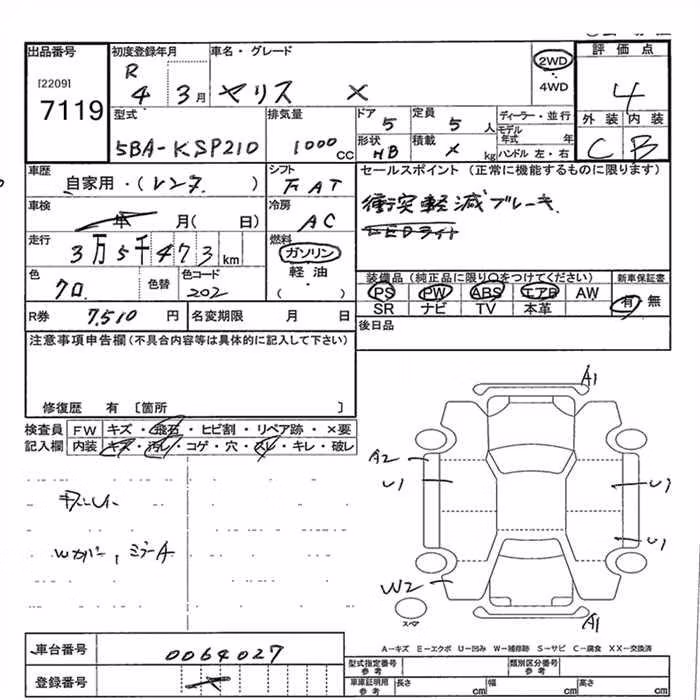 出品番号
[2209]
7119
初度登録年月
R
4 3月
車名・グレード
ヤリス X
2WD
・
4WD
評価点
4
外装 内装
C B
型式
5BA-KSP210
排気量
1000 CC
ドア
5
定員
5 人
形状
HB
積載
kg
ディーラー・並行
モデル年式 年
ハンドル 左・右
車歴
自家用・(レンタ )
シフト
FAT
セールスポイント (正常に機能するものに限ります)
衝突軽減ブレーキ
LEDライト
車検
年 月( 日)
冷房
AC
走行
3万5千473km
燃料
ガソリン
軽油
・
( )
色
クロ
色替
色コード
202
装備品(純正品に限り○をつけてください)
新車保証書
PS PW ABS エアB AW
有・無
SR ナビ TV 本革
R券 7,510 円
名変期限 月 日
後日品
注意事項申告欄(不具合内容等は具体的に記入して下さい)
修復歴 有 〔箇所 〕
検査員
記入欄
FW キズ・飛石・ヒビ割・リペア跡・×要
内装 キズ・汚レ・コゲ・穴・スレ・キレ・破レ
Wカバー, ミラーA
A1
A2
U1
U1
U1
W2
A1
スペア
A-キズ E-エクボ U-凹み W-補修跡 S-サビ C-腐食 XX-交換済
車台番号
0064027
登録番号
型式指定番号
参考
類別区分番号
参考
車庫証明用
参考
長さ cm
幅 cm
高さ cm